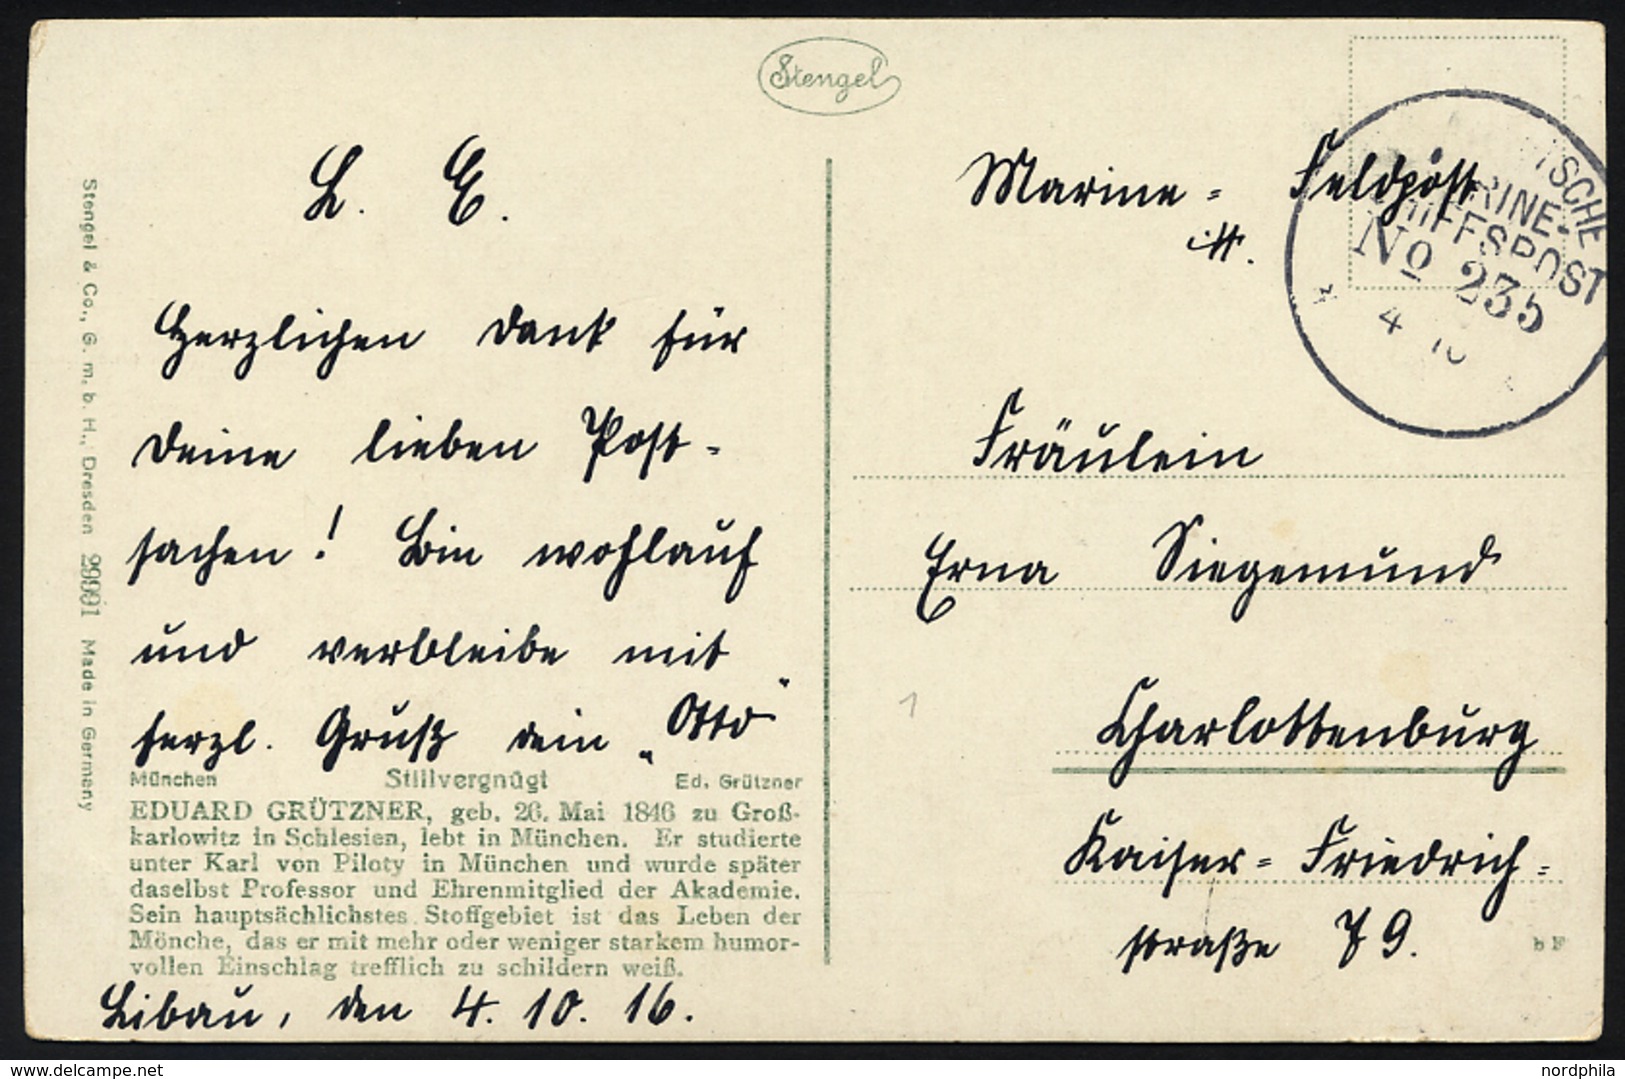 Stengel
L. E.
Herzlichen Dank für
Deine lieben Post-
sachen! Bin wohlauf
und verbleibe mit
herzl. Gruß Dein „Otto"
München Stillvergnügt Ed. Grützner
EDUARD GRÜTZNER, geb. 26. Mai 1846 zu Groß-
karlowitz in Schlesien, lebt in München. Er studierte
unter Karl von Piloty in München und wurde später
daselbst Professor und Ehrenmitglied der Akademie.
Sein hauptsächlichstes Stoffgebiet ist das Leben der
Mönche, das er mit mehr oder weniger starkem humor-
vollen Einschlag trefflich zu schildern weiß.
Libau, den 4. 10. 16.
Stengel & Co., G. m. b. H., Dresden 29991 Made in Germany
Marine- Feldpost
TSCHE
RINE-
SCHIFFSPOST
No 235
4 10
Fräulein
Erna Siegemund
Charlottenburg
Kaiser- Friedrich-
straße 79.
1
delcampe.net
nordphila